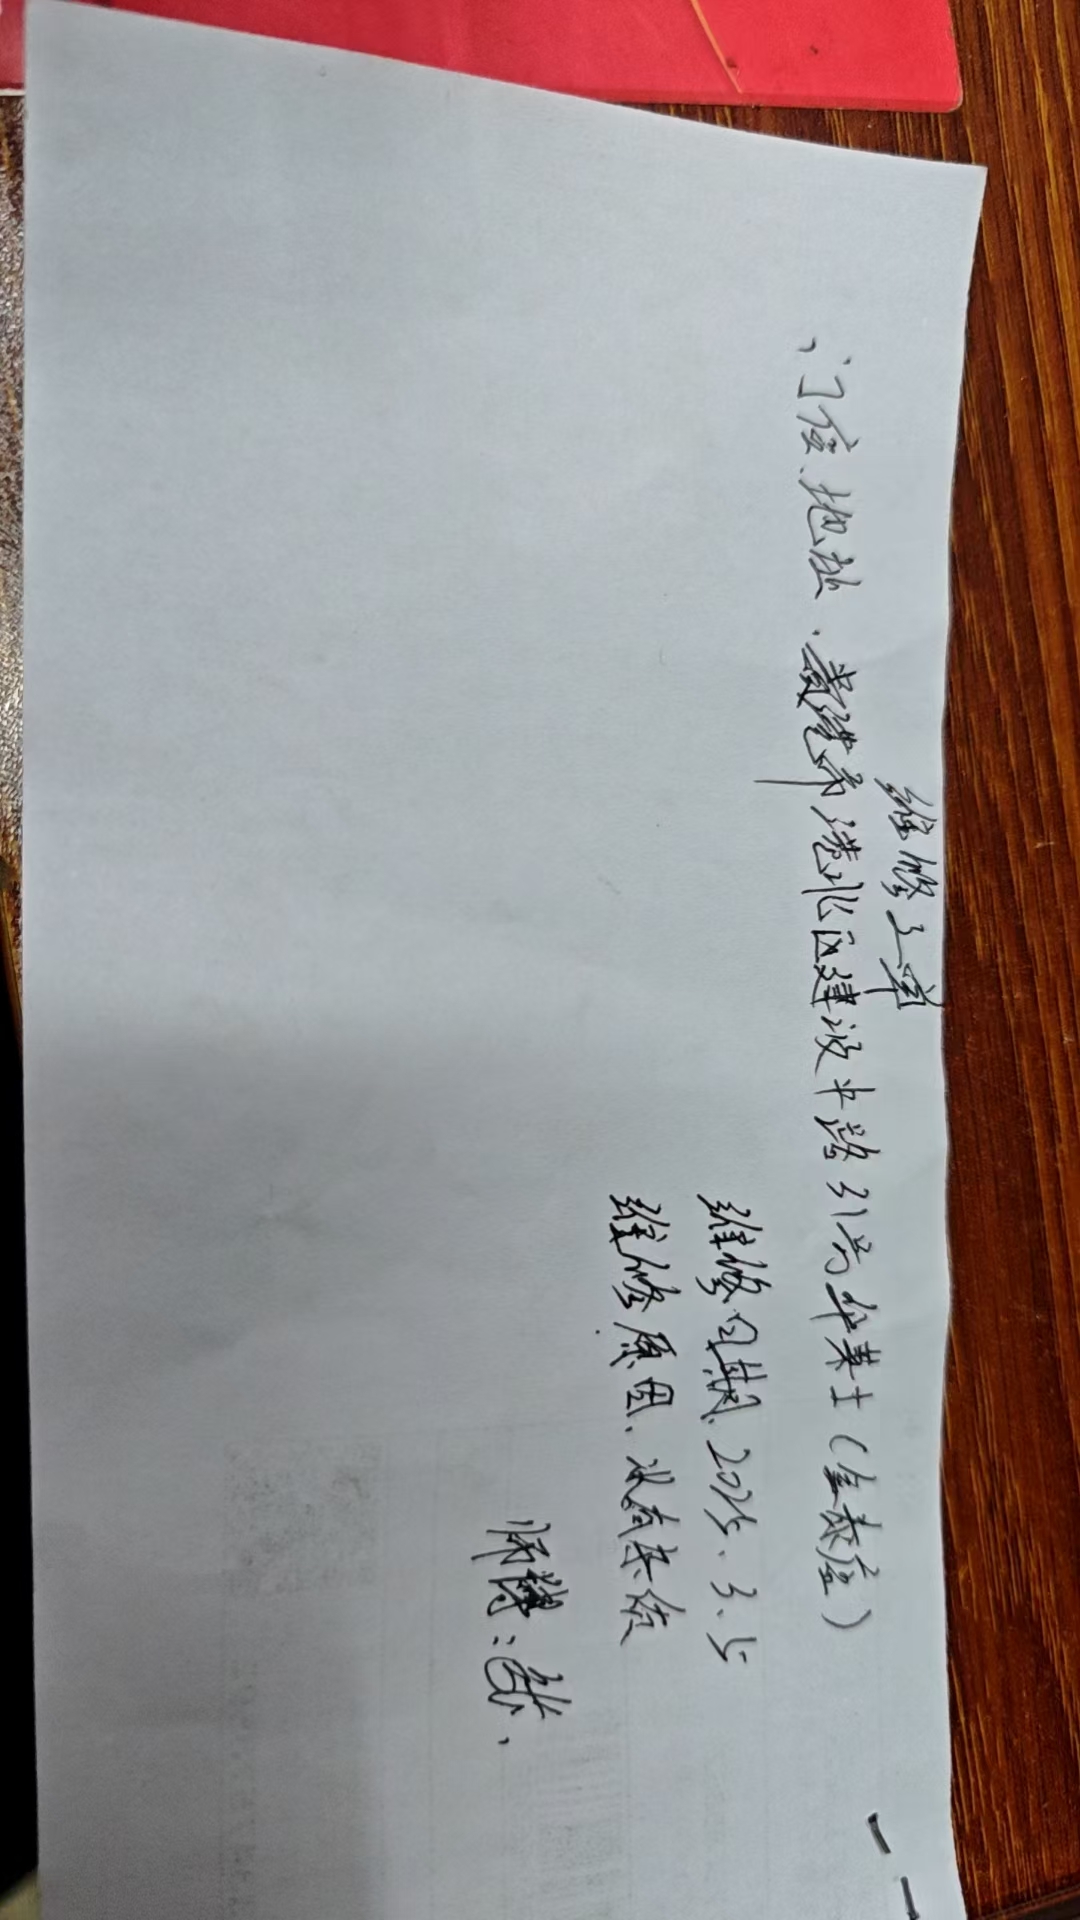 维修工单
门店地址、贵港市港北区建设中路31号华莱士(金泰店)
维修日期、2025.3.5
维修原因、没有冻结
师傅:张